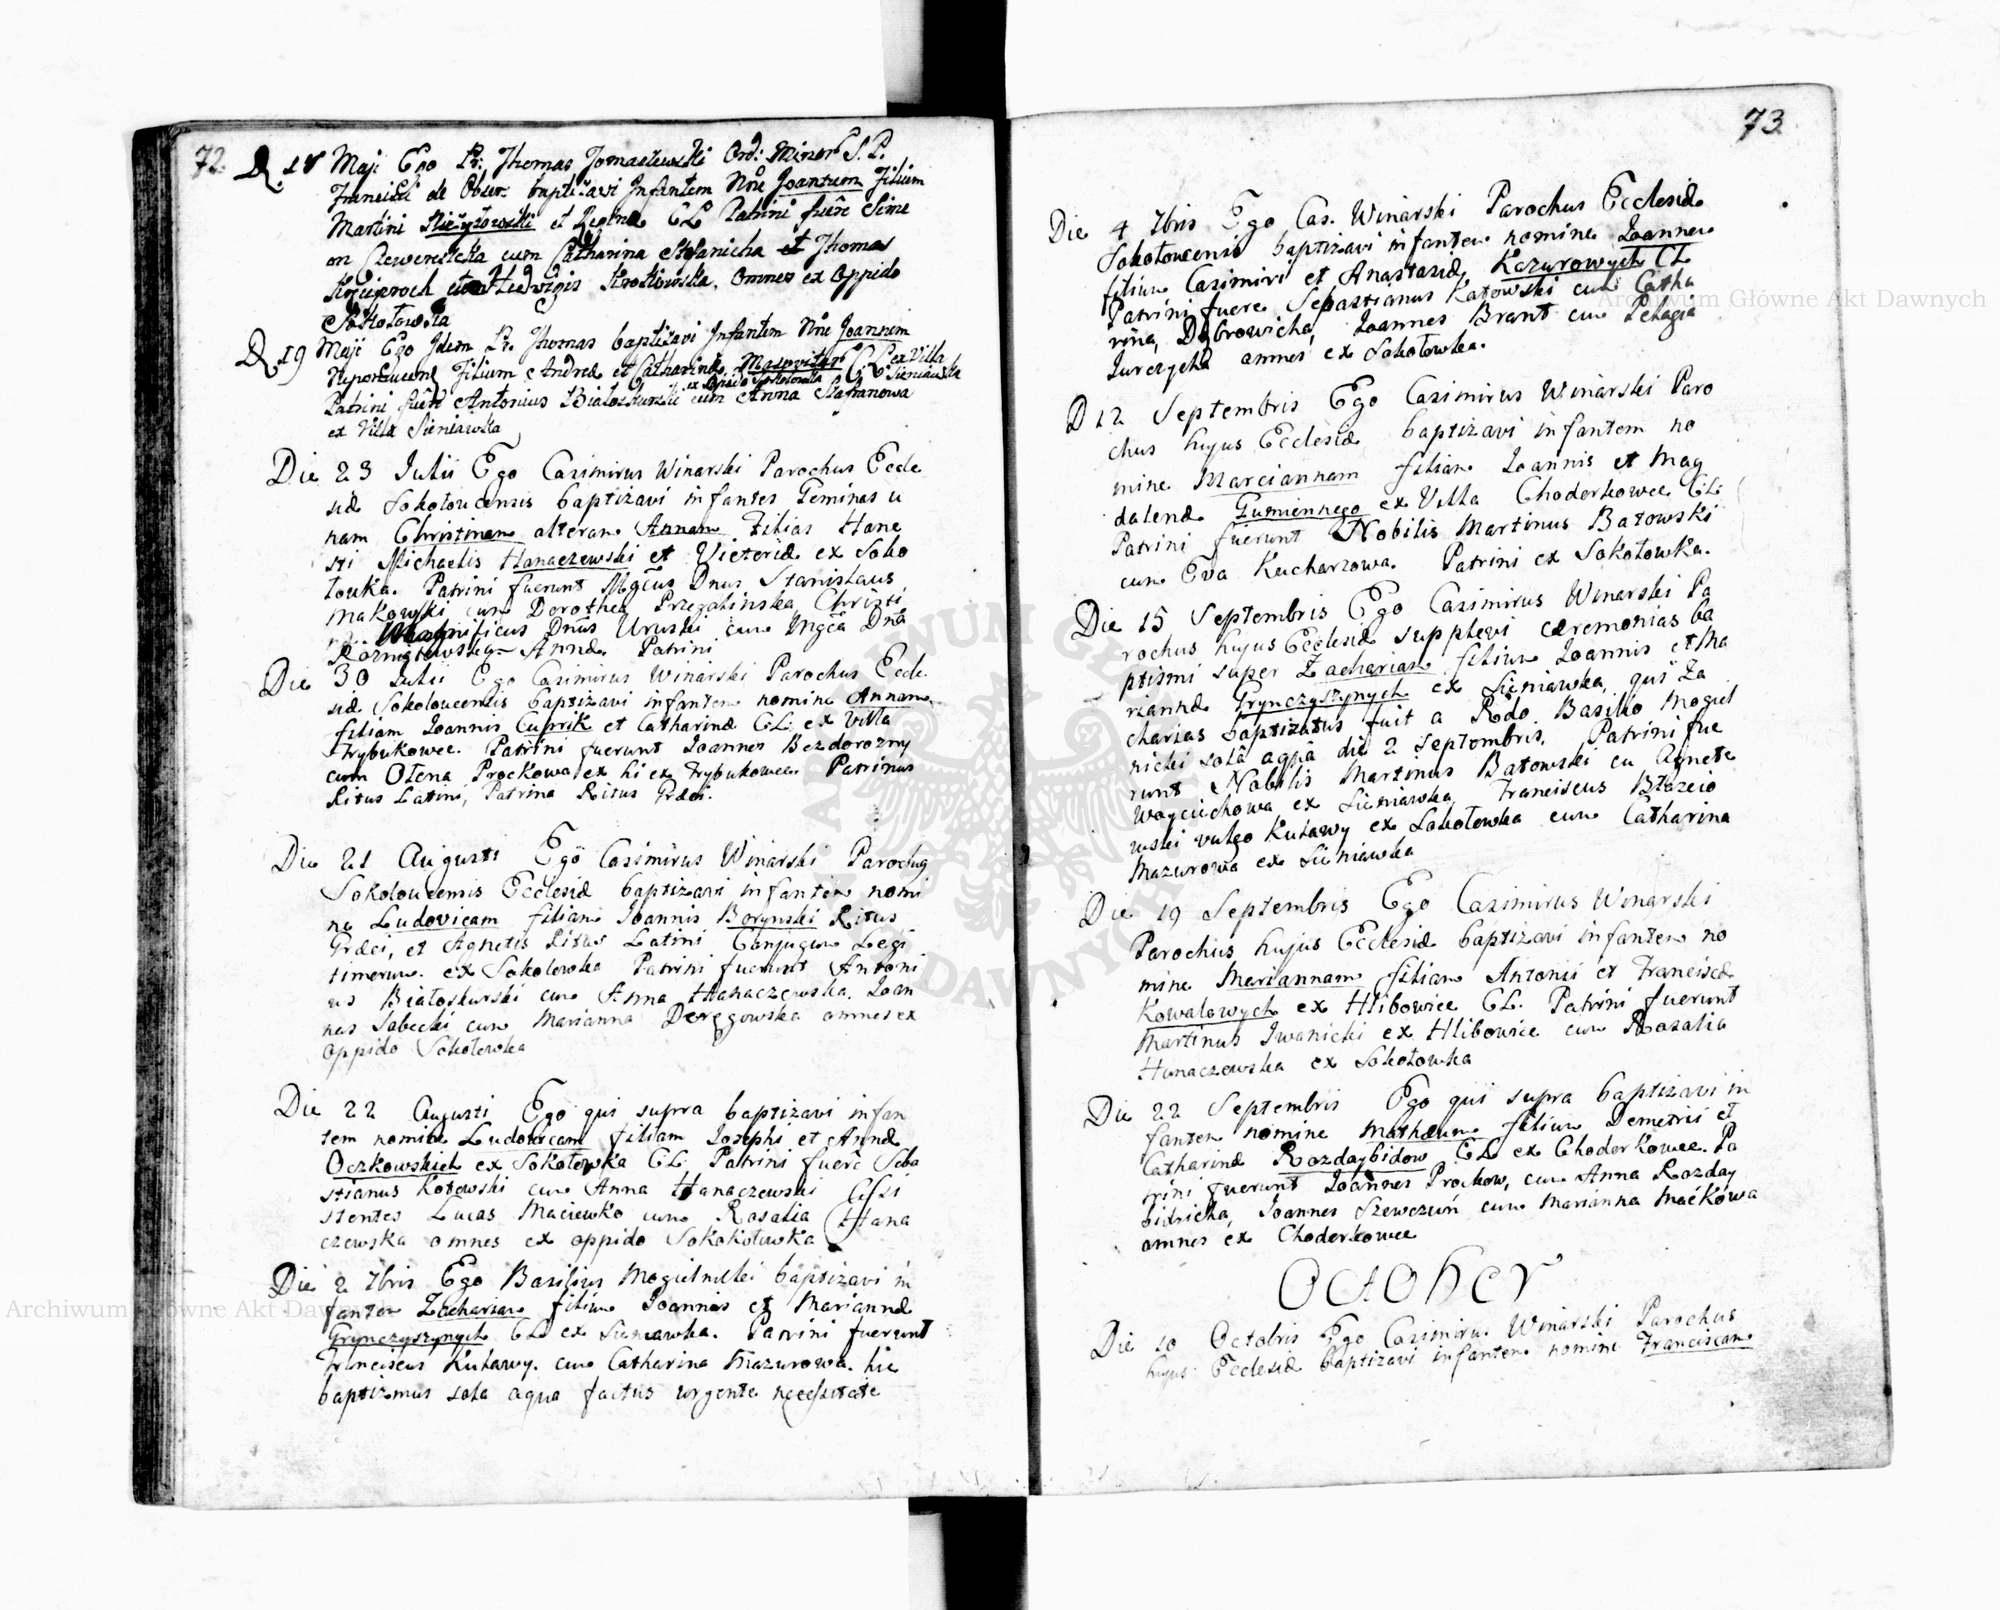 72.
D. 18 Maji Ego Fr: Thomas Tomaszewski Ord: Minor S. P.
Francisci de Obser. baptizavi Infantem Nõe Joannem Filium
Martini et Regina CL Patrini fuere Sime
on cum Catharina Stefanicha et Thomas
Hedvigis Krotkowska. Omnes ex Oppido
Sokołowka
D. 19 Maji Ego Idem Fr. Thomas baptizavi Infantem Nõe Joannem
Nepomucenũ Filium Andreæ et Catharinæ CL ex Villa Sieniawka
Patrini fuere Antonius Białoskurski ex Oppido Sokołowka cum Anna Stefanowa
ex Villa Sieniawka
Die 23 Julii Ego Casimirus Winarski Parochus Eccle
siæ Sokołoucensis baptizavi infantes Geminas u
nam Christinam alteram Annam Filias Hone
sti Michaelis Hanaczewski et Victoriæ ex Soko
łouka. Patrini fuerunt Mgcus Dnus Stanislaus
Makowski cum Dorothea Przegalinska, Christi
Magnificus Dnus Uruski cum Mgca Dna
Annæ. Patrini
Die 30 Julii Ego Casimirus Winarski Parochus Eccle
siæ Sokołoucensis baptizavi infantem nomine Annam
filiam Joannis Cuprik et Catharinæ CL: ex villa
Trybukowce. Patrini fuerunt Joannes Bezdorozny
cum Olena Prockowa ex hi ex Trybukowce Patrinus
Ritus Latini, Patrina Ritus Græci.
Die 21 Augusti Ego Casimirus Winarski Parochus
Sokołoucensis Ecclesiæ baptizavi infantem nomi
ne Ludovicam filiam Joannis Borynski Ritus
Græci, et Agnetis Ritus Latini Conjugum Legi
timorum. ex Sokołowka Patrini fuerunt Antoni
us Białoskurski cum Anna Hanaczewska. Joan
nes Sabecki cum Marianna Deręgowska omnes ex
oppido Sokołowka
Die 22 Augusti Ego qui supra baptizavi infan
tem nomine Ludovicam filiam Josephi et Annæ
Oczkowskich ex Sokołowka CL. Patrini fuere Seba
stianus Kotowski cum Anna Hanaczewski Assi
stentes Lucas Maciewko cum Rosalia Hana
czewska omnes ex oppido Sokokołowka
Die 2 7bris Ego Basilius Mogielnicki baptizavi in
fantem Zachariam filium Joannis et Mariannæ
Grynczyszynych CL ex Sieniawka. Patrini fuerunt
Franciscus Kuławy. cum Catharina Mazurowa. hic
baptizmus sola aqua factus urgente necessitate
73.
Die 4 7bris Ego Cas. Winarski Parochus Ecclesiæ
Sokołoucensis baptizavi infantem nomine Joannem
filium Casimiri et Anastasiæ Kazurowych CL
Patrini fuere Sebastianus Katowski cum Catha
rina Dąbrowicha, Joannes Brant cum Pelagia
Jurczycha omnes ex Sokołowka.
D 12 Septembris Ego Casimirus Winarski Paro
chus hujus Ecclesiæ baptizavi infantem no
mine Marciannam filiam Joannis et Mag
dalenæ Gumiennego ex Villa Choderkowce CL:
Patrini fuerunt Nobilis Martinus Batowski
cum Eva Kucharzowa. Patrini ex Sokołowka.
Die 15 Septembris Ego Casimirus Winarski Pa
rochus hujus Ecclesiæ supplevi cæremonias ba
ptismi super Zachariam filium Joannis et Ma
riannæ Grynczyszynych ex Sieniawka, qui Za
charias baptizatus fuit a Rdo Basilio Mogiel
nicki solâ aquâ die 2 Septembris. Patrini fue
runt Nobilis Martinus Batowski cu Agnete
Woyciechowa ex Sieniawka, Franciscus Błazeio
wski vulgo Kuławy ex Sokołowka cum Catharina
Mazurowa ex Sieniawka
Die 19 Septembris Ego Casimirus Winarski
Parochus hujus Ecclesiæ baptizavi infantem no
mine Mariannam filiam Antonii et Franciscæ
Kowalowych ex Hlibowice CL. Patrini fuerunt
Martinus Iwanicki ex Hlibowice cum Rosalia
Hanaczewska ex Sokołowka
Die 22 Septembris Ego qui supra baptizavi in
fantem nomine Mathæum filium Demetrii et
Catharinæ Rozdaybidow CL ex Choderkowce. Pa
trini fuerunt Joannes Prockow, cum Anna Rozday
bidzicha, Joannes Szewczuń cum Marianna Maćkówa
omnes ex Choderkowce
October
Die 10 Octobris Ego Casimirus Winarski Parochus
hujus Ecclesiæ baptizavi infantem nomine Franciscam
Archiwum Główne Akt Dawnych
Archiwum Główne Akt Dawnych
ARCHIWUM GŁÓWNE AKT DAWNYCH